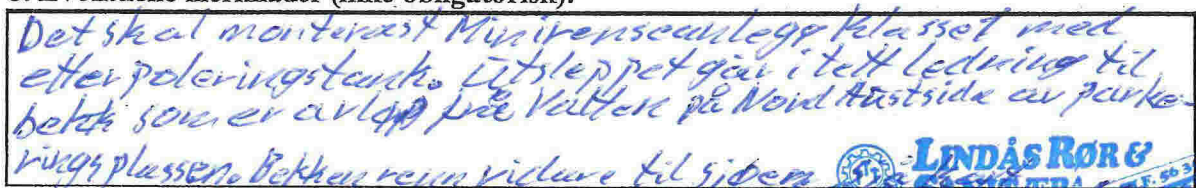 Det skal monterast Minirenseanlegg Klasse1 med
etterpoleringstank. Utsleppet går i tett ledning til
bekk som er avløp frå Vatten på Nord Austside av parke-
ringsplassen. Bekken renn vidare til sjøen
LINDÅS RØR &